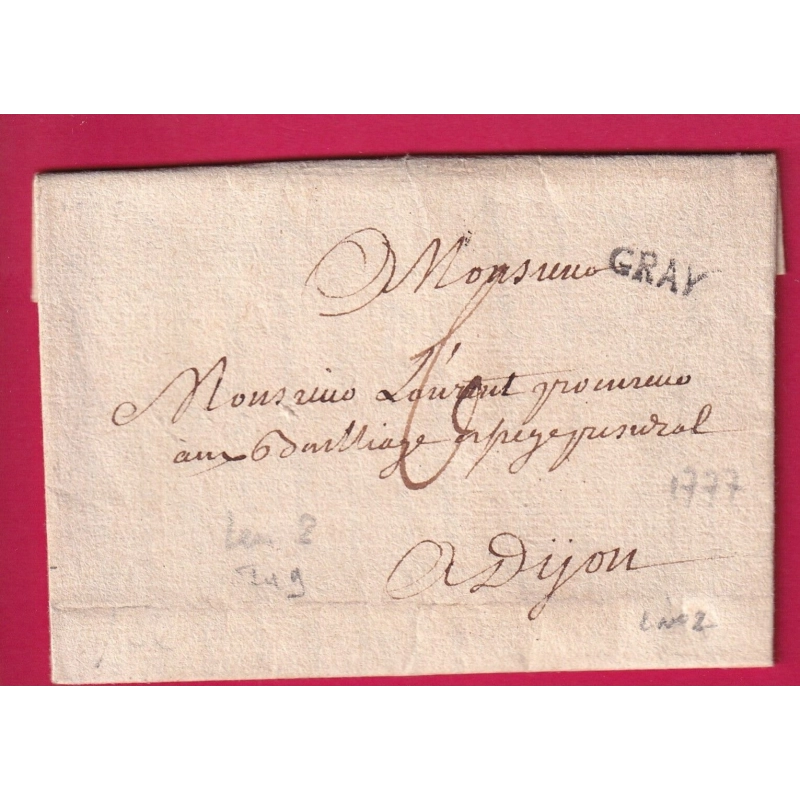 Monsieur
GRAY
6
Monsieur Laurent procureur
aux Bailliage et siege presidral
1777
Len 2
A Dijon
L no 2